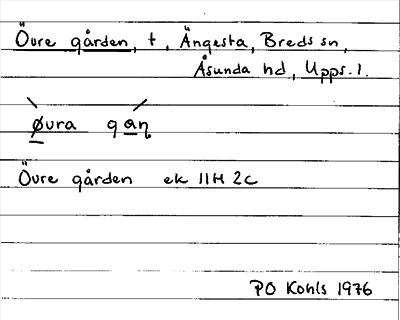 Övre gården, t, Ängesta, Breds sn,
Åsunda hd, Upps. l.
ø̀vra gáṇ
Övre gården ek 11H 2c
PO Kohls 1976